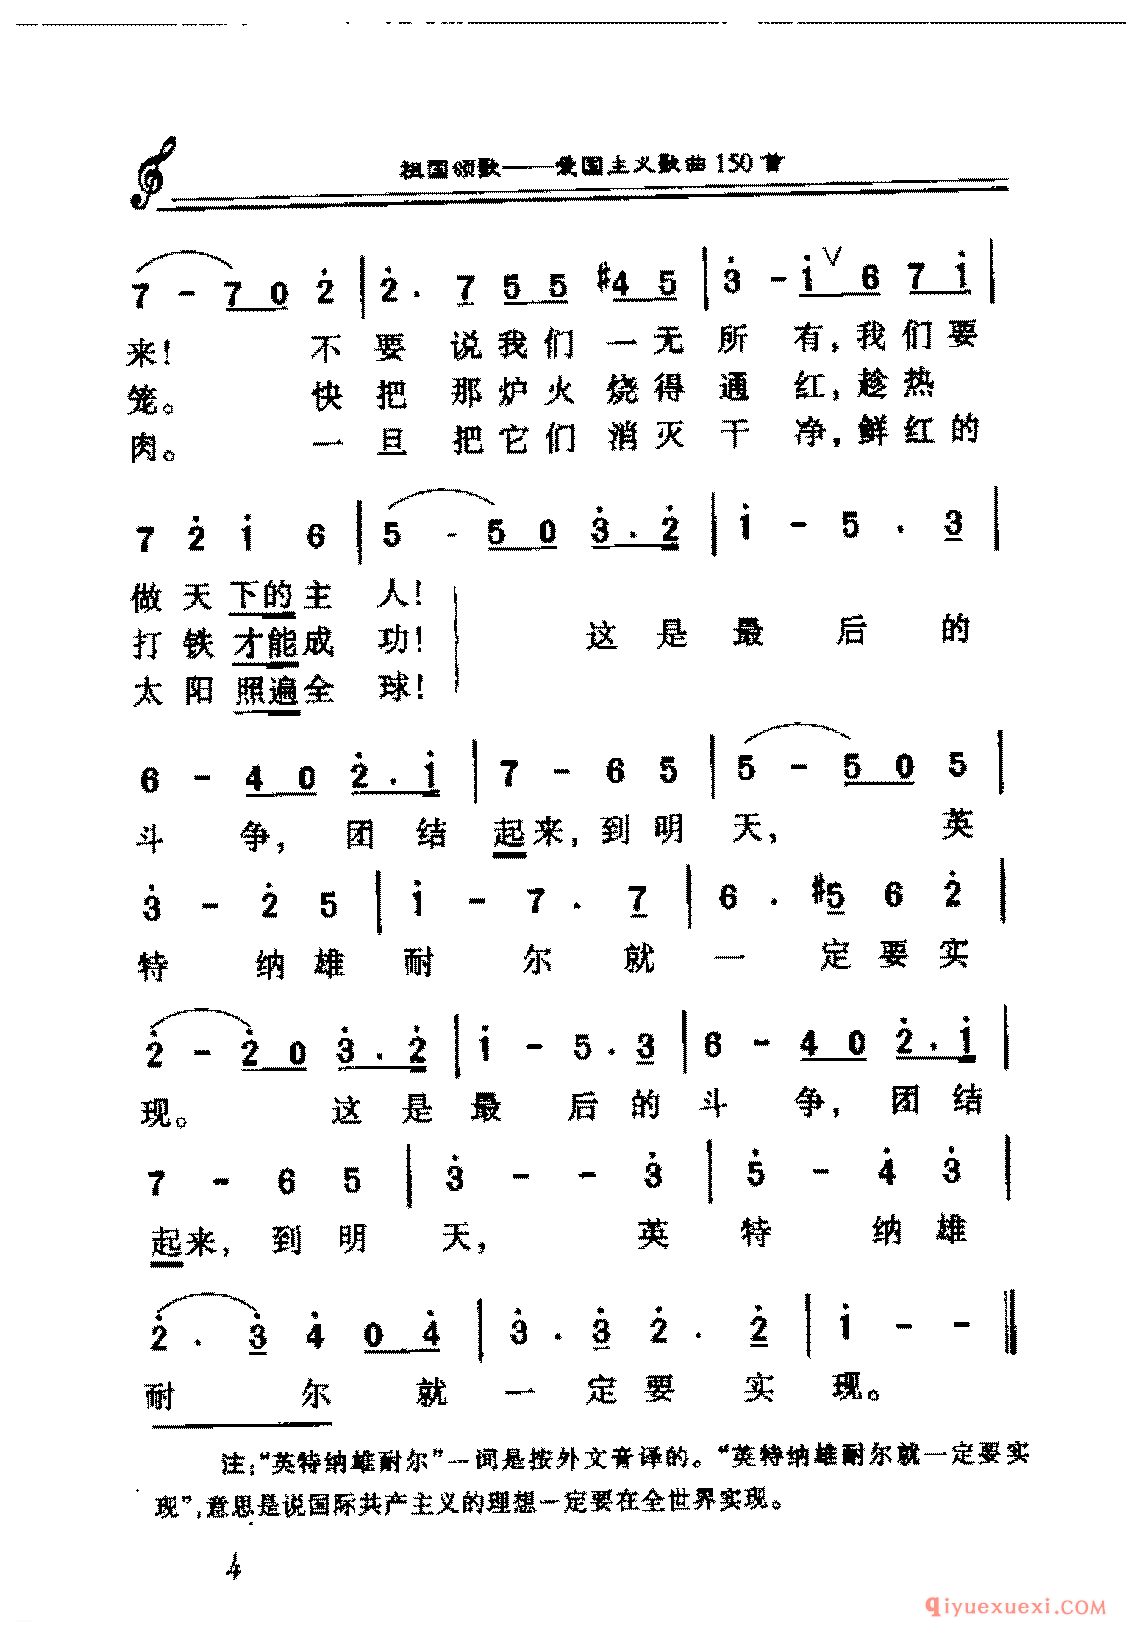 祖国颂歌——爱国主义歌曲150首
7 - 7 0 2 | 2 . 7 5 5 #4 5 | 3 - 1 ∨ 6 7 1 |
来! 不 要 说 我 们 一 无 所 有, 我 们 要
笼。 快 把 那 炉 火 烧 得 通 红, 趁 热
肉。 一 旦 把 它 们 消 灭 干 净, 鲜 红 的
7 2 1 6 | 5 - 5 0 3 . 2 | 1 - 5 . 3 |
做 天 下 的 主 人!
打 铁 才 能 成 功! 这 是 最 后 的
太 阳 照 遍 全 球!
6 - 4 0 2 . 1 | 7 - 6 5 | 5 - 5 0 5 |
斗 争, 团 结 起 来, 到 明 天, 英
3 - 2 5 | 1 - 7 . 7 | 6 . #5 6 2 |
特 纳 雄 耐 尔 就 一 定 要 实
2 - 2 0 3 . 2 | 1 - 5 . 3 | 6 - 4 0 2 . 1 |
现。 这 是 最 后 的 斗 争, 团 结
7 - 6 5 | 3 - - 3 | 5 - 4 3 |
起 来, 到 明 天, 英 特 纳 雄
2 . 3 4 0 4 | 3 . 3 2 . 2 | 1 - - ‖
耐 尔 就 一 定 要 实 现。
注:“英特纳雄耐尔”一词是按外文音译的。“英特纳雄耐尔就一定要实
现”,意思是说国际共产主义的理想一定要在全世界实现。
4
qiyuexuexi.COM